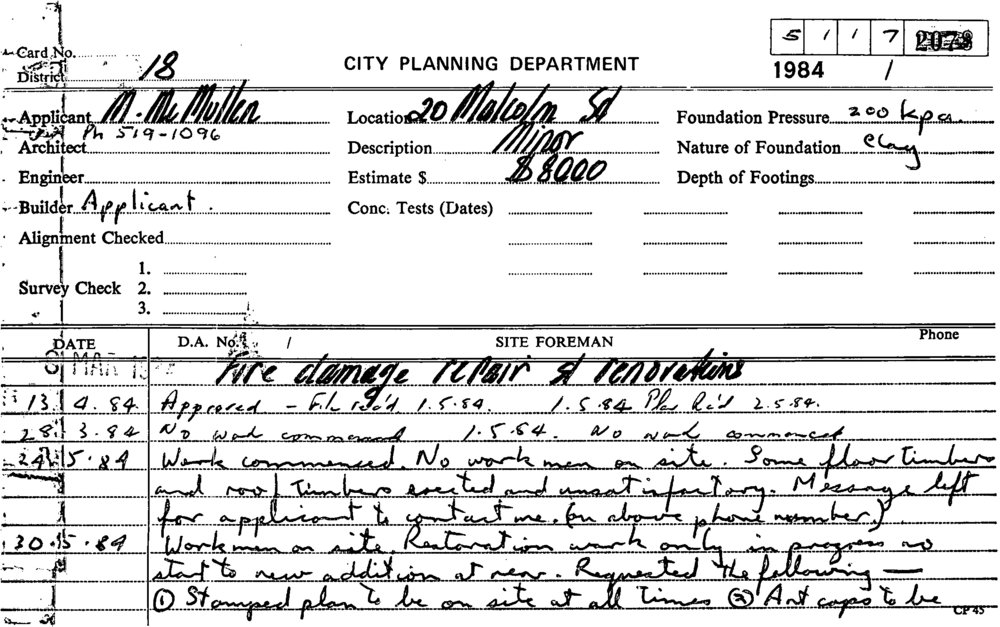 5 1 1 7 2073
Card No.
District 18
CITY PLANNING DEPARTMENT
1984 /
Applicant M. McMullen
Location 20 Malcolm St
Foundation Pressure 200 kpa.
Ph 519-1096
Architect
Description Minor
Nature of Foundation Clay
Engineer
Estimate $ $8000
Depth of Footings
Builder Applicant.
Conc. Tests (Dates)
Alignment Checked
1.
Survey Check 2.
3.
DATE D.A. No. / SITE FOREMAN Phone
8 MAR Fire damage repair & renovations
13. 4. 84. Approved - File rec'd 1.5.84. 1.5.84 Plan Rec'd 2.5.84.
28. 3. 84 No work commenced 1.5.84. No work commenced
24. 5. 84 Work commenced. No workmen on site. Some floor timbers
and roof timbers erected and unsatisfactory. Message left
for applicant to contact me. (on above phone number.)
30.5.84 Workmen on site. Restoration work only in progress no
start to new addition at rear. Requested the following —
① Stamped plan to be on site at all times ② Ant caps to be
CP 45